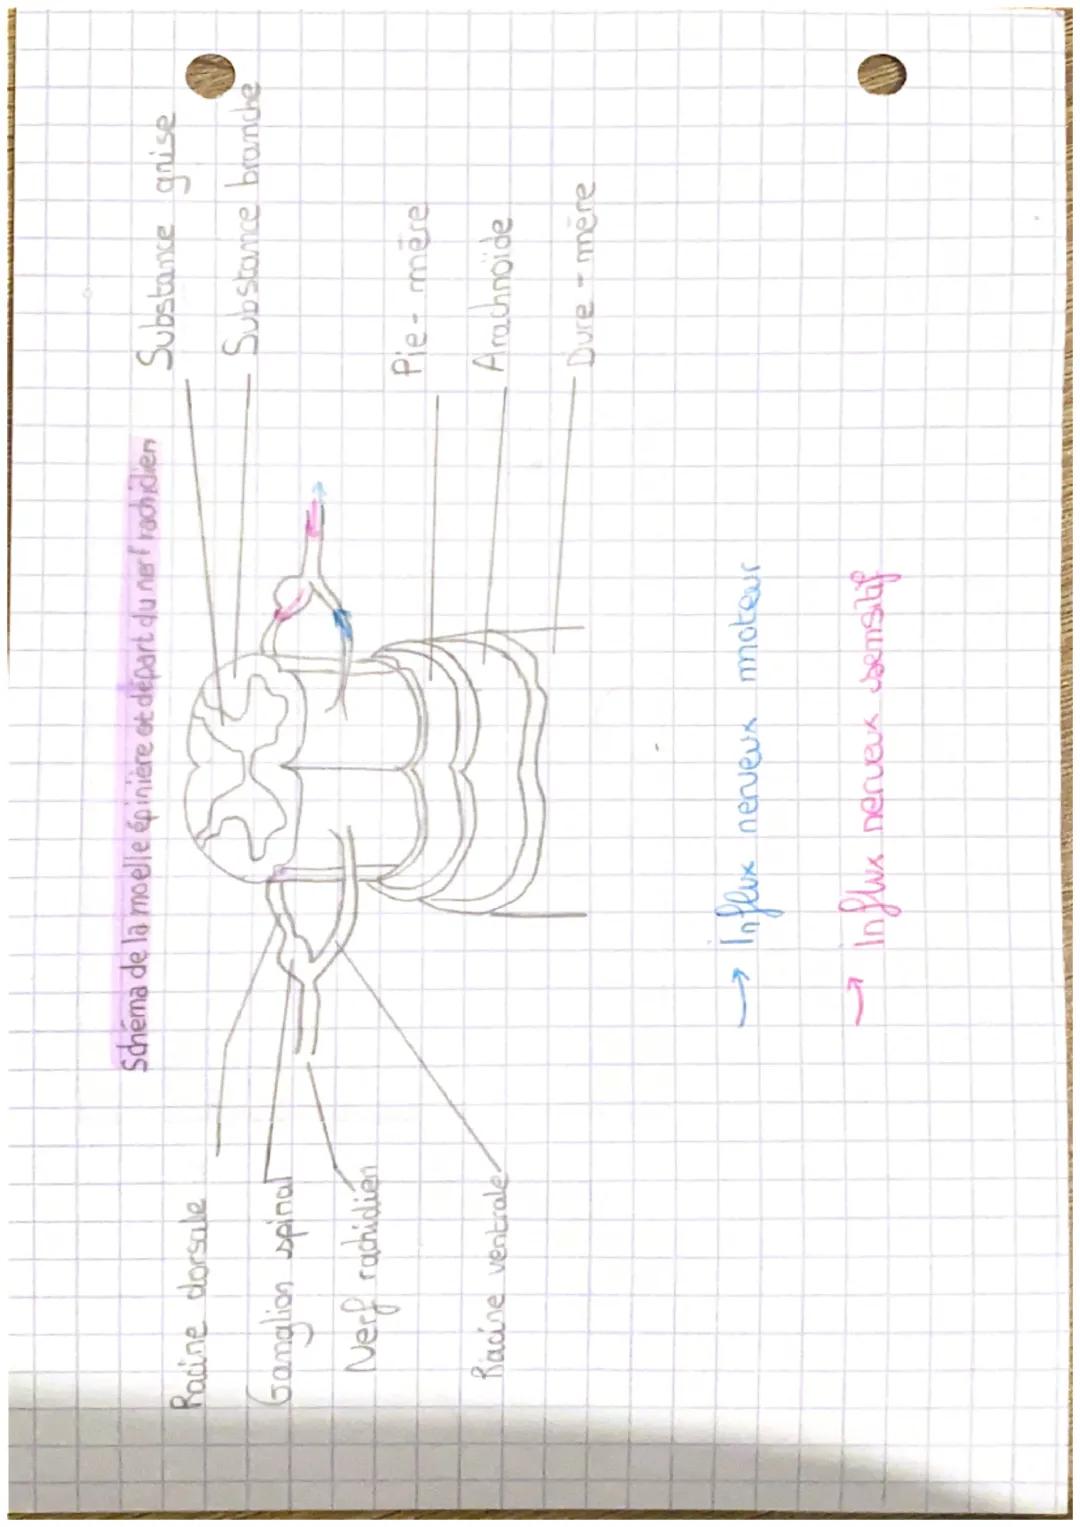 Schéma de la moelle épinière et départ du nerf rachidien
Substance grise
Substance blanche
Pie-mère
Arachnoïde
Dure-mère
Racine dorsale
Ganglion spinal
Nerf rachidien
Racine ventrale
→ Influx nerveux moteur
→ Influx nerveux sensitif